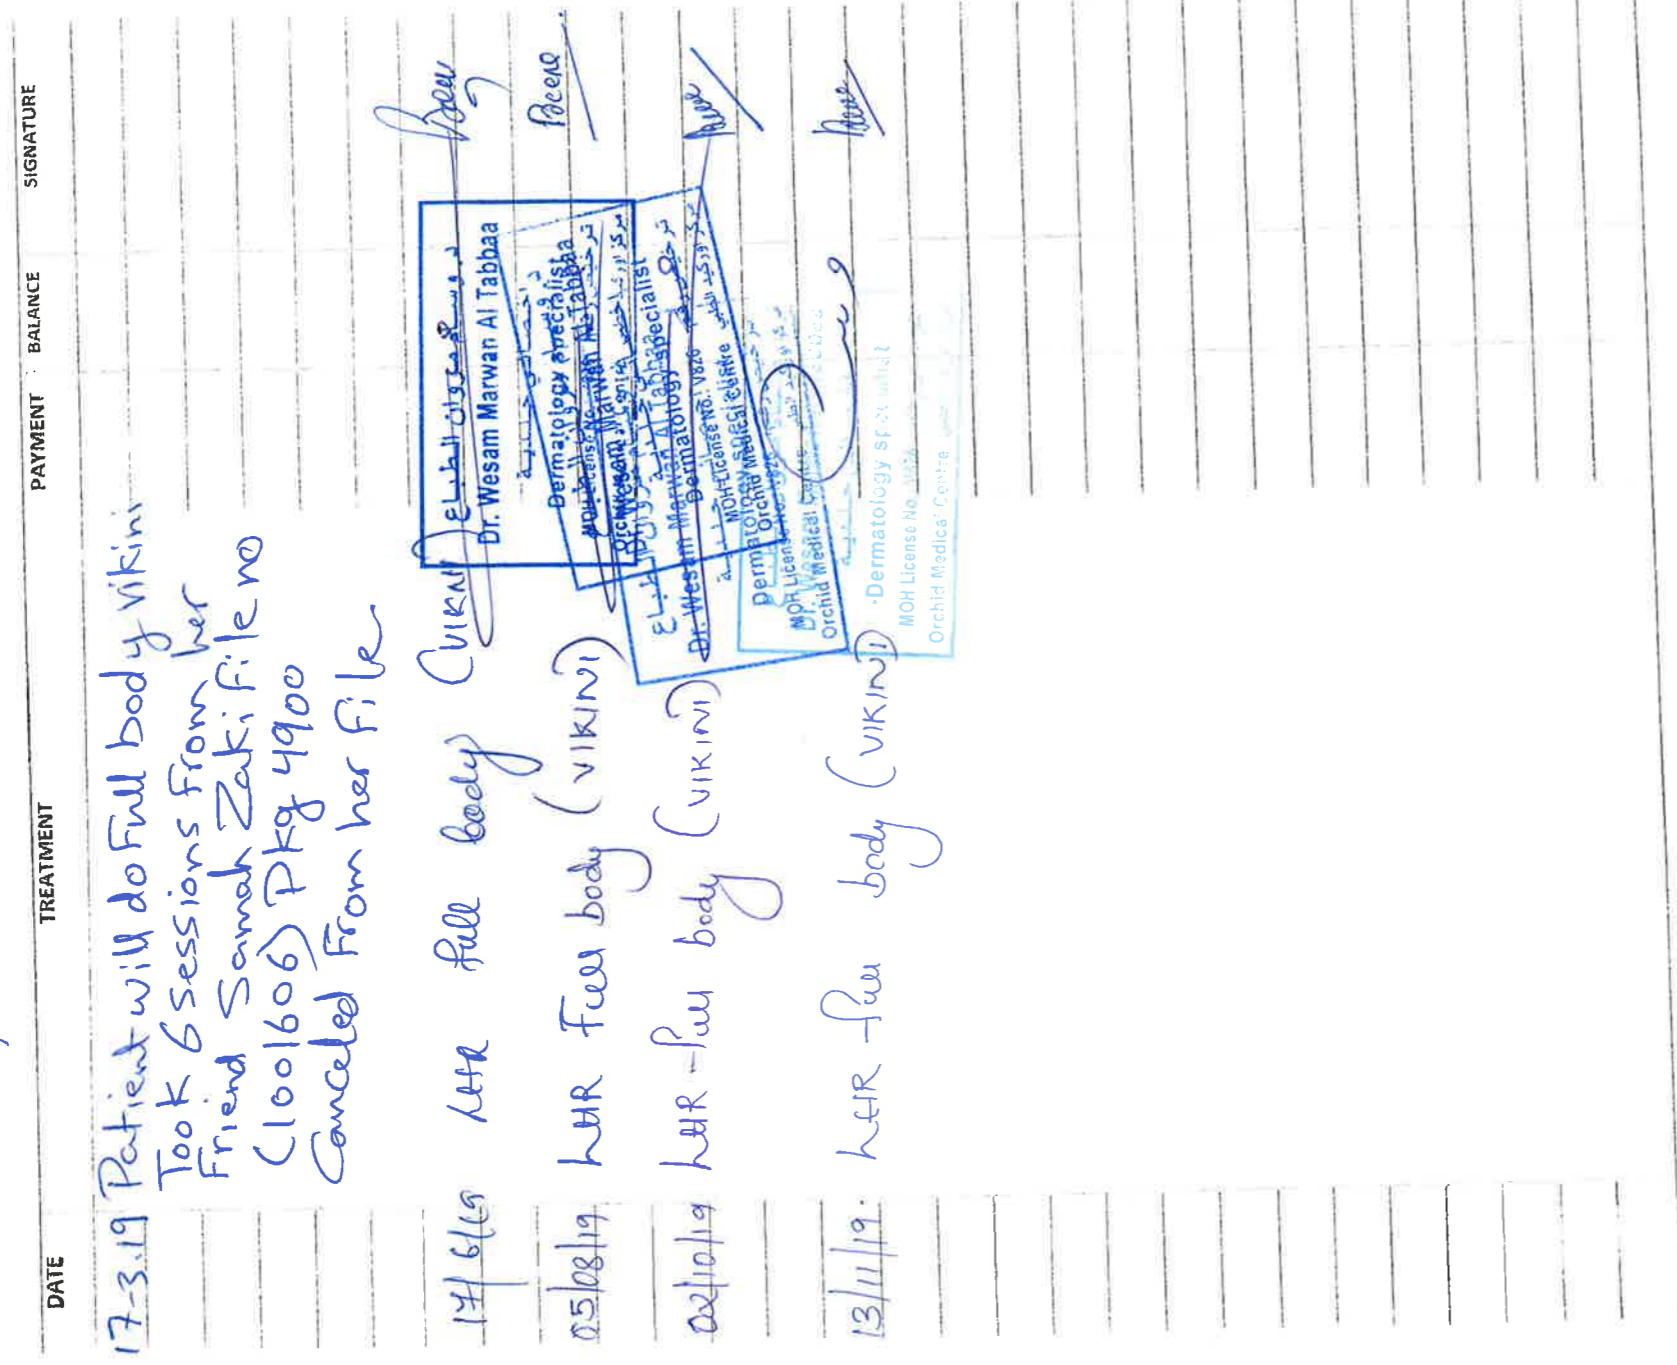 DATE TREATMENT PAYMENT BALANCE SIGNATURE
17-3.19 Patient will do Full body vikini
Took 6 sessions From her
Friend Samah Zaki File no
(1001606) Pkg 4900
Canceled From her File
17/6/19 LHR full body (VIKINI)
05/08/19 LHR Full body (VIKINI)
02/10/19 LHR full body (VIKINI)
13/11/19. LHR full body (VIKINI)
د. وسام مروان الطباع
Dr. Wesam Marwan Al Tabbaa
Dermatology specialist
MOH License No.: V826
Orchid Medical Centre
Dr. Wesam Marwan Al Tabbaa
Dermatology specialist
MOH License No.
Orchid Medical Centre
Dermatology specialist
MOH License No.
Orchid Medical Centre